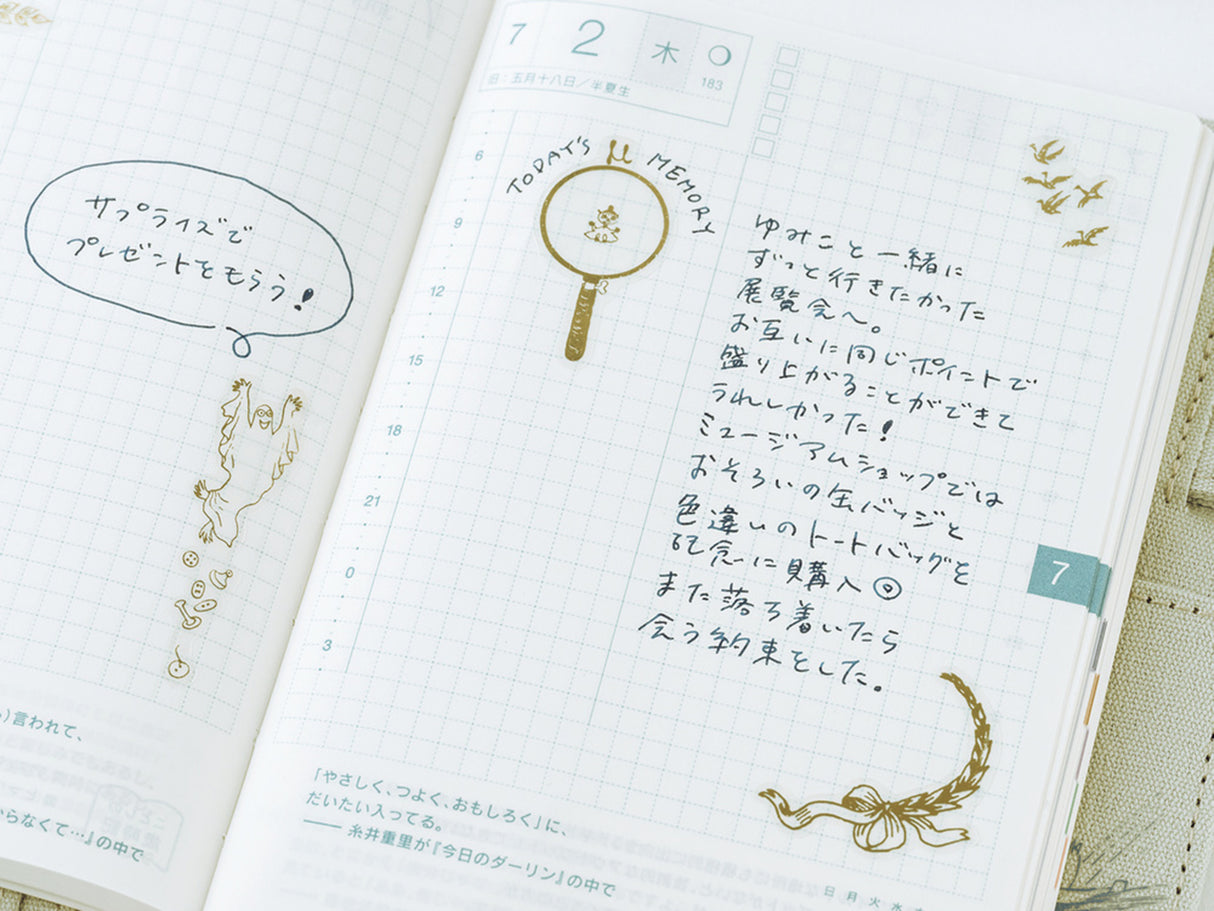 サプライズで
プレゼントをもらう!
言われて、
らなくて…』の中で
7 2 木
183
旧:五月十八日/半夏生
TODAY'S μ MEMORY
6
9
12
15
18
21
0
3
ゆみこと一緒に
ずっと行きたかった
展覧会へ。
お互いに同じポイントで
盛り上がることができて
うれしかった!
ミュージアムショップでは
おそろいの缶バッジと
色違いのトートバッグを
記念に購入
また落ち着いたら
会う約束をした。
7
「やさしく、つよく、おもしろく」に、
だいたい入ってる。
—— 糸井重里が『今日のダーリン』の中で
日 月 火 水